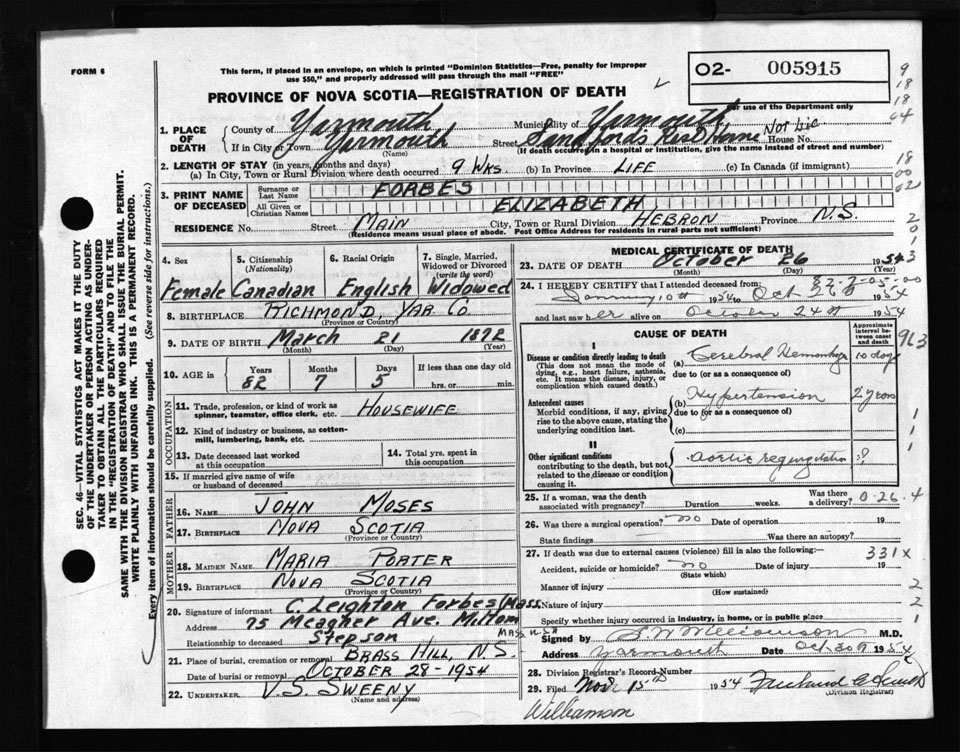 FORM 6
This form, if placed in an envelope, on which is printed "Dominion Statistics—Free, penalty for improper
use $50," and properly addressed will pass through the mail "FREE"
O2- 005915
For use of the Department only
PROVINCE OF NOVA SCOTIA—REGISTRATION OF DEATH
1. PLACE OF DEATH
County of Yarmouth Municipality of Yarmouth
If in City or Town Yarmouth Street House No. Not Lic
(Name) (If death occurred in a hospital or institution, give the name instead of street and number)
2. LENGTH OF STAY (in years, months and days)
(a) In City, Town or Rural Division where death occurred 9 WKS. (b) In Province LIFE (c) In Canada (if immigrant)
3. PRINT NAME OF DECEASED
Surname or Last Name FORBES
All Given or Christian Names ELIZABETH
RESIDENCE No. Street MAIN City, Town or Rural Division HEBRON Province N.S.
(Residence means usual place of abode. Post Office Address for residents in rural parts not sufficient)
4. Sex 5. Citizenship (Nationality) 6. Racial Origin 7. Single, Married, Widowed or Divorced (write the word)
Female Canadian English Widowed
8. BIRTHPLACE RICHMOND, YAR. CO.
(Province or Country)
9. DATE OF BIRTH March 21 1872
(Month) (Day) (Year)
10. AGE in Years Months Days If less than one day old
82 7 5 hrs. or min.
OCCUPATION
11. Trade, profession, or kind of work as spinner, teamster, office clerk, etc. HOUSEWIFE
12. Kind of industry or business, as cotton-mill, lumbering, bank, etc.
13. Date deceased last worked at this occupation
14. Total yrs. spent in this occupation
15. If married give name of wife or husband of deceased
FATHER
16. Name JOHN MOSES
17. Birthplace NOVA SCOTIA
(Province or Country)
MOTHER
18. Maiden Name MARIA PORTER
19. Birthplace NOVA SCOTIA
(Province or Country)
20. Signature of informant C. Leighton Forbes (Mass.
Address 75 Meagher Ave. Milton
MASS U.S.A
Relationship to deceased Stepson
21. Place of burial, cremation or removal BRASS HILL, N.S.
Date of burial or removal OCTOBER 28-1954
22. UNDERTAKER V.S. SWEENY
(Name and address)
MEDICAL CERTIFICATE OF DEATH
23. DATE OF DEATH October 26 1954
(Month) (Day) (Year)
24. I HEREBY CERTIFY that I attended deceased from:
10th 1954 to Oct 1954
and last saw her alive on October 24th 1954
CAUSE OF DEATH
Approximate interval between onset and death
I
Disease or condition directly leading to death
(This does not mean the mode of dying, e.g., heart failure, asthenia, etc. It means the disease, injury, or complication which caused death.)
(a) Cerebral Hemorrhage 10 days
due to (or as a consequence of)
Antecedent causes
Morbid conditions, if any, giving rise to the above cause, stating the underlying condition last.
(b) Hypertension 2 years
due to (or as a consequence of)
(c)
II
Other significant conditions
contributing to the death, but not related to the disease or condition causing it.
Aortic regurgitation ?
25. If a woman, was the death associated with pregnancy? Duration weeks. Was there a delivery?
0-26.4
26. Was there a surgical operation? no Date of operation 19
State findings Was there an autopsy?
27. If death was due to external causes (violence) fill in also the following:
331X
Accident, suicide or homicide? no Date of injury 19
(State which)
Manner of injury
(How sustained)
Nature of injury
Specify whether injury occurred in industry, in home, or in public place
Signed by Williamson M.D.
Address Yarmouth Date Oct 30 1954
28. Division Registrar's Record Number
29. Filed Nov 15 1954
(Division Registrar)
Williamson
SEC. 46—VITAL STATISTICS ACT MAKES IT THE DUTY
OF THE UNDERTAKER OR PERSON ACTING AS UNDER-
TAKER TO OBTAIN ALL THE PARTICULARS REQUIRED
IN THE "REGISTRATION OF DEATH" AND TO FILE THE
SAME WITH THE DIVISION REGISTRAR WHO SHALL ISSUE THE BURIAL PERMIT.
WRITE PLAINLY WITH UNFADING INK. THIS IS A PERMANENT RECORD.
Every item of information should be carefully supplied. (See reverse side for instructions.)
9
18
18
04
18
00
02
2
0
1
3
963
1
1
1
2
2
1